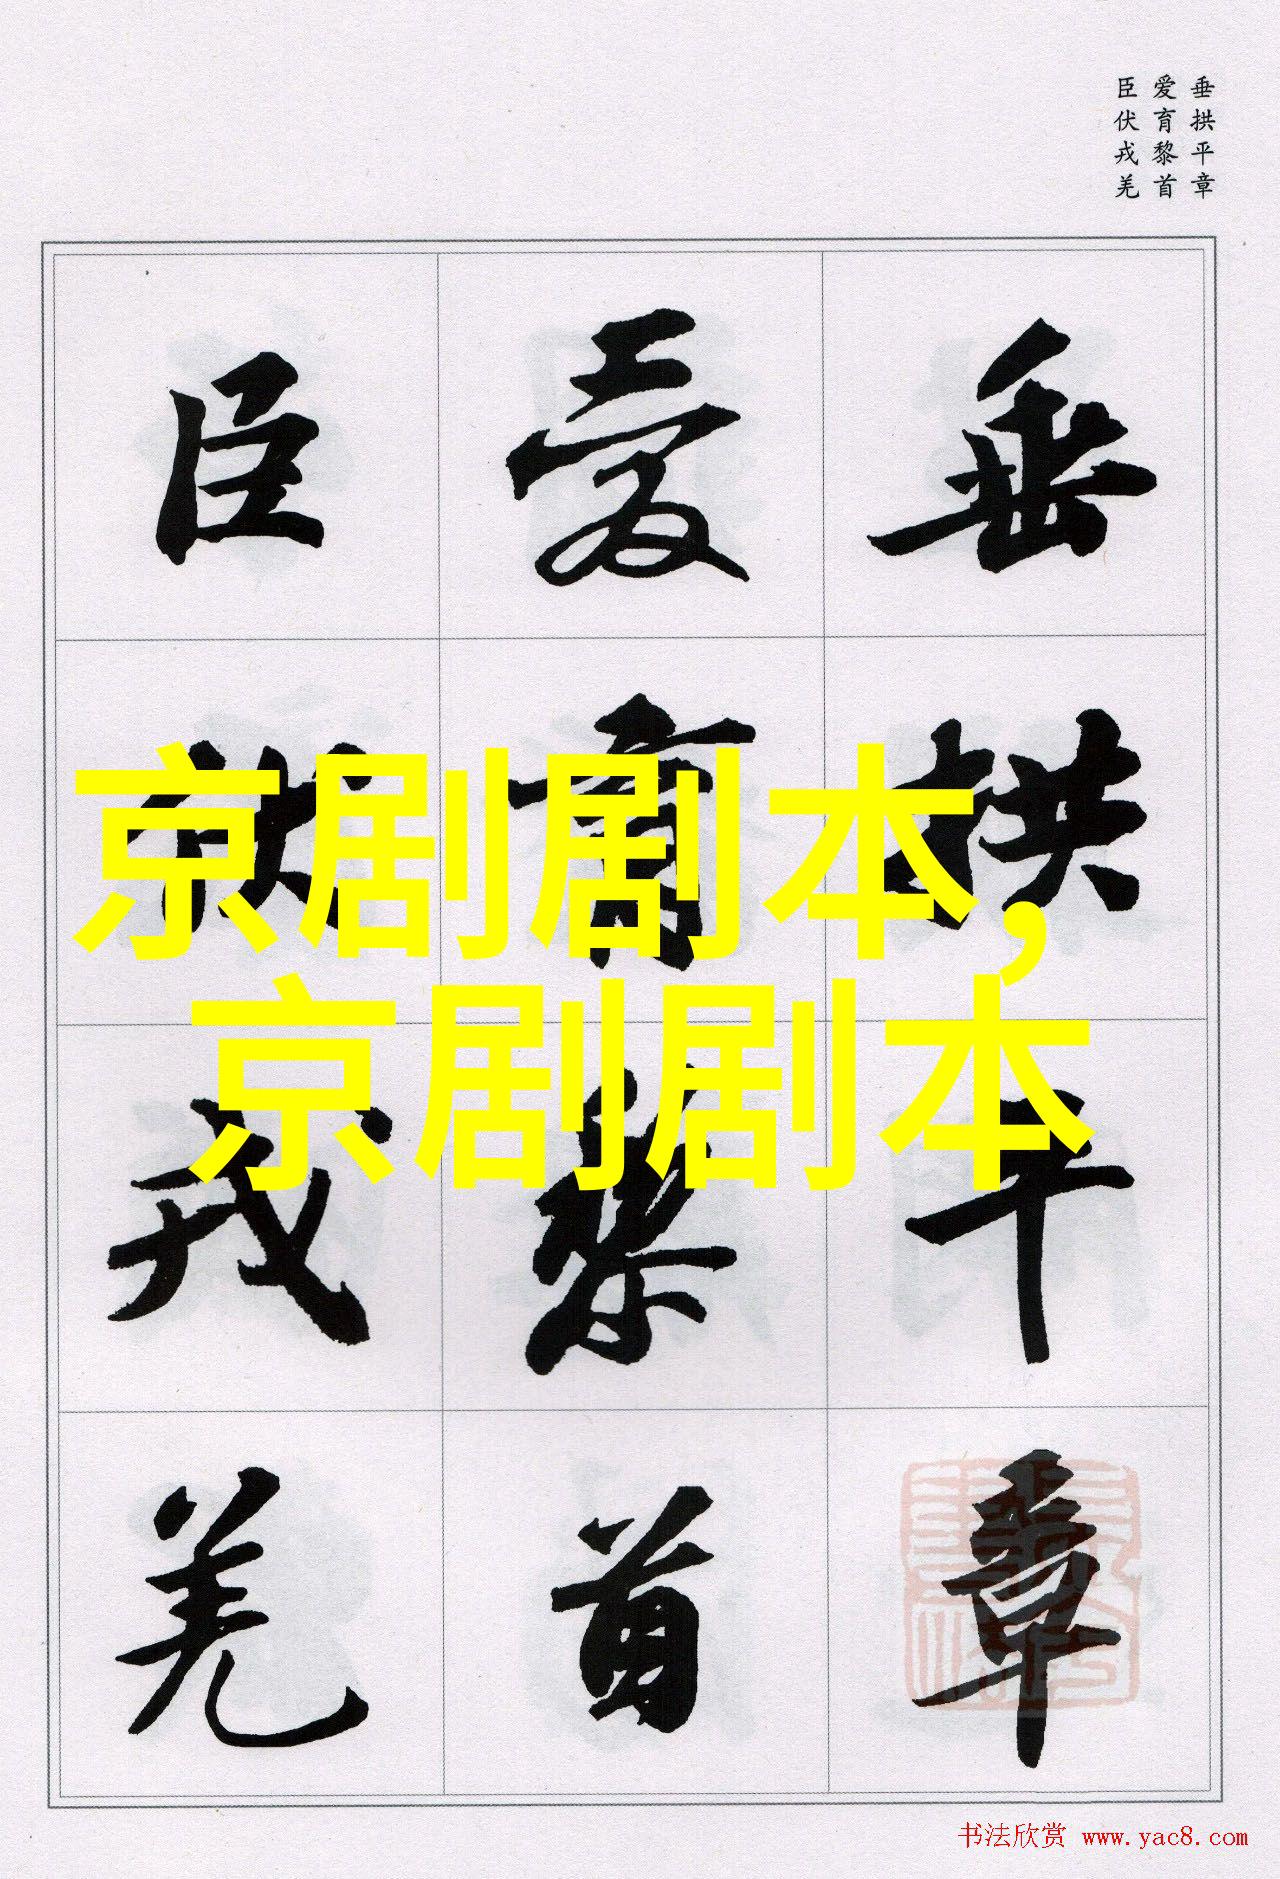 垂拱平章
爱育黎首
臣伏戎羌
垂拱平章
爱育黎首
臣伏戎羌
京剧剧本，
京剧剧本
书法欣赏 www.yac8.com